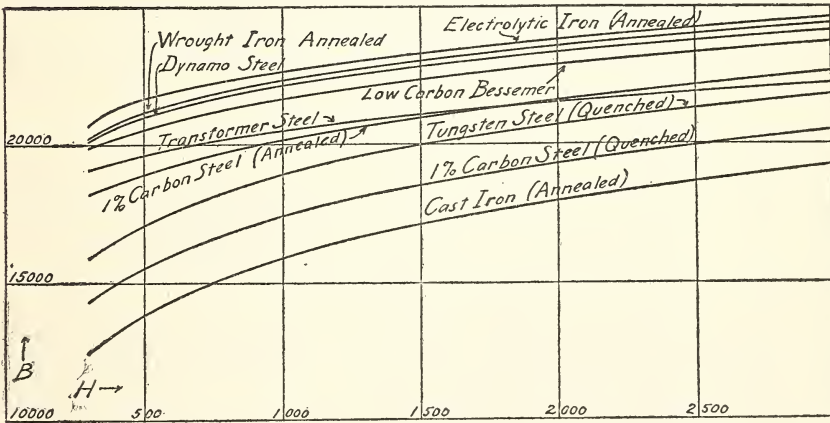 Electrolytic Iron (Annealed)
Wrought Iron Annealed
Dynamo Steel
Low Carbon Bessemer
Transformer Steel
Tungsten Steel (Quenched)
20000
1% Carbon Steel (Annealed)
1% Carbon Steel (Quenched)
Cast Iron (Annealed)
15000
B
H
10000
500
1000
1500
2000
2500